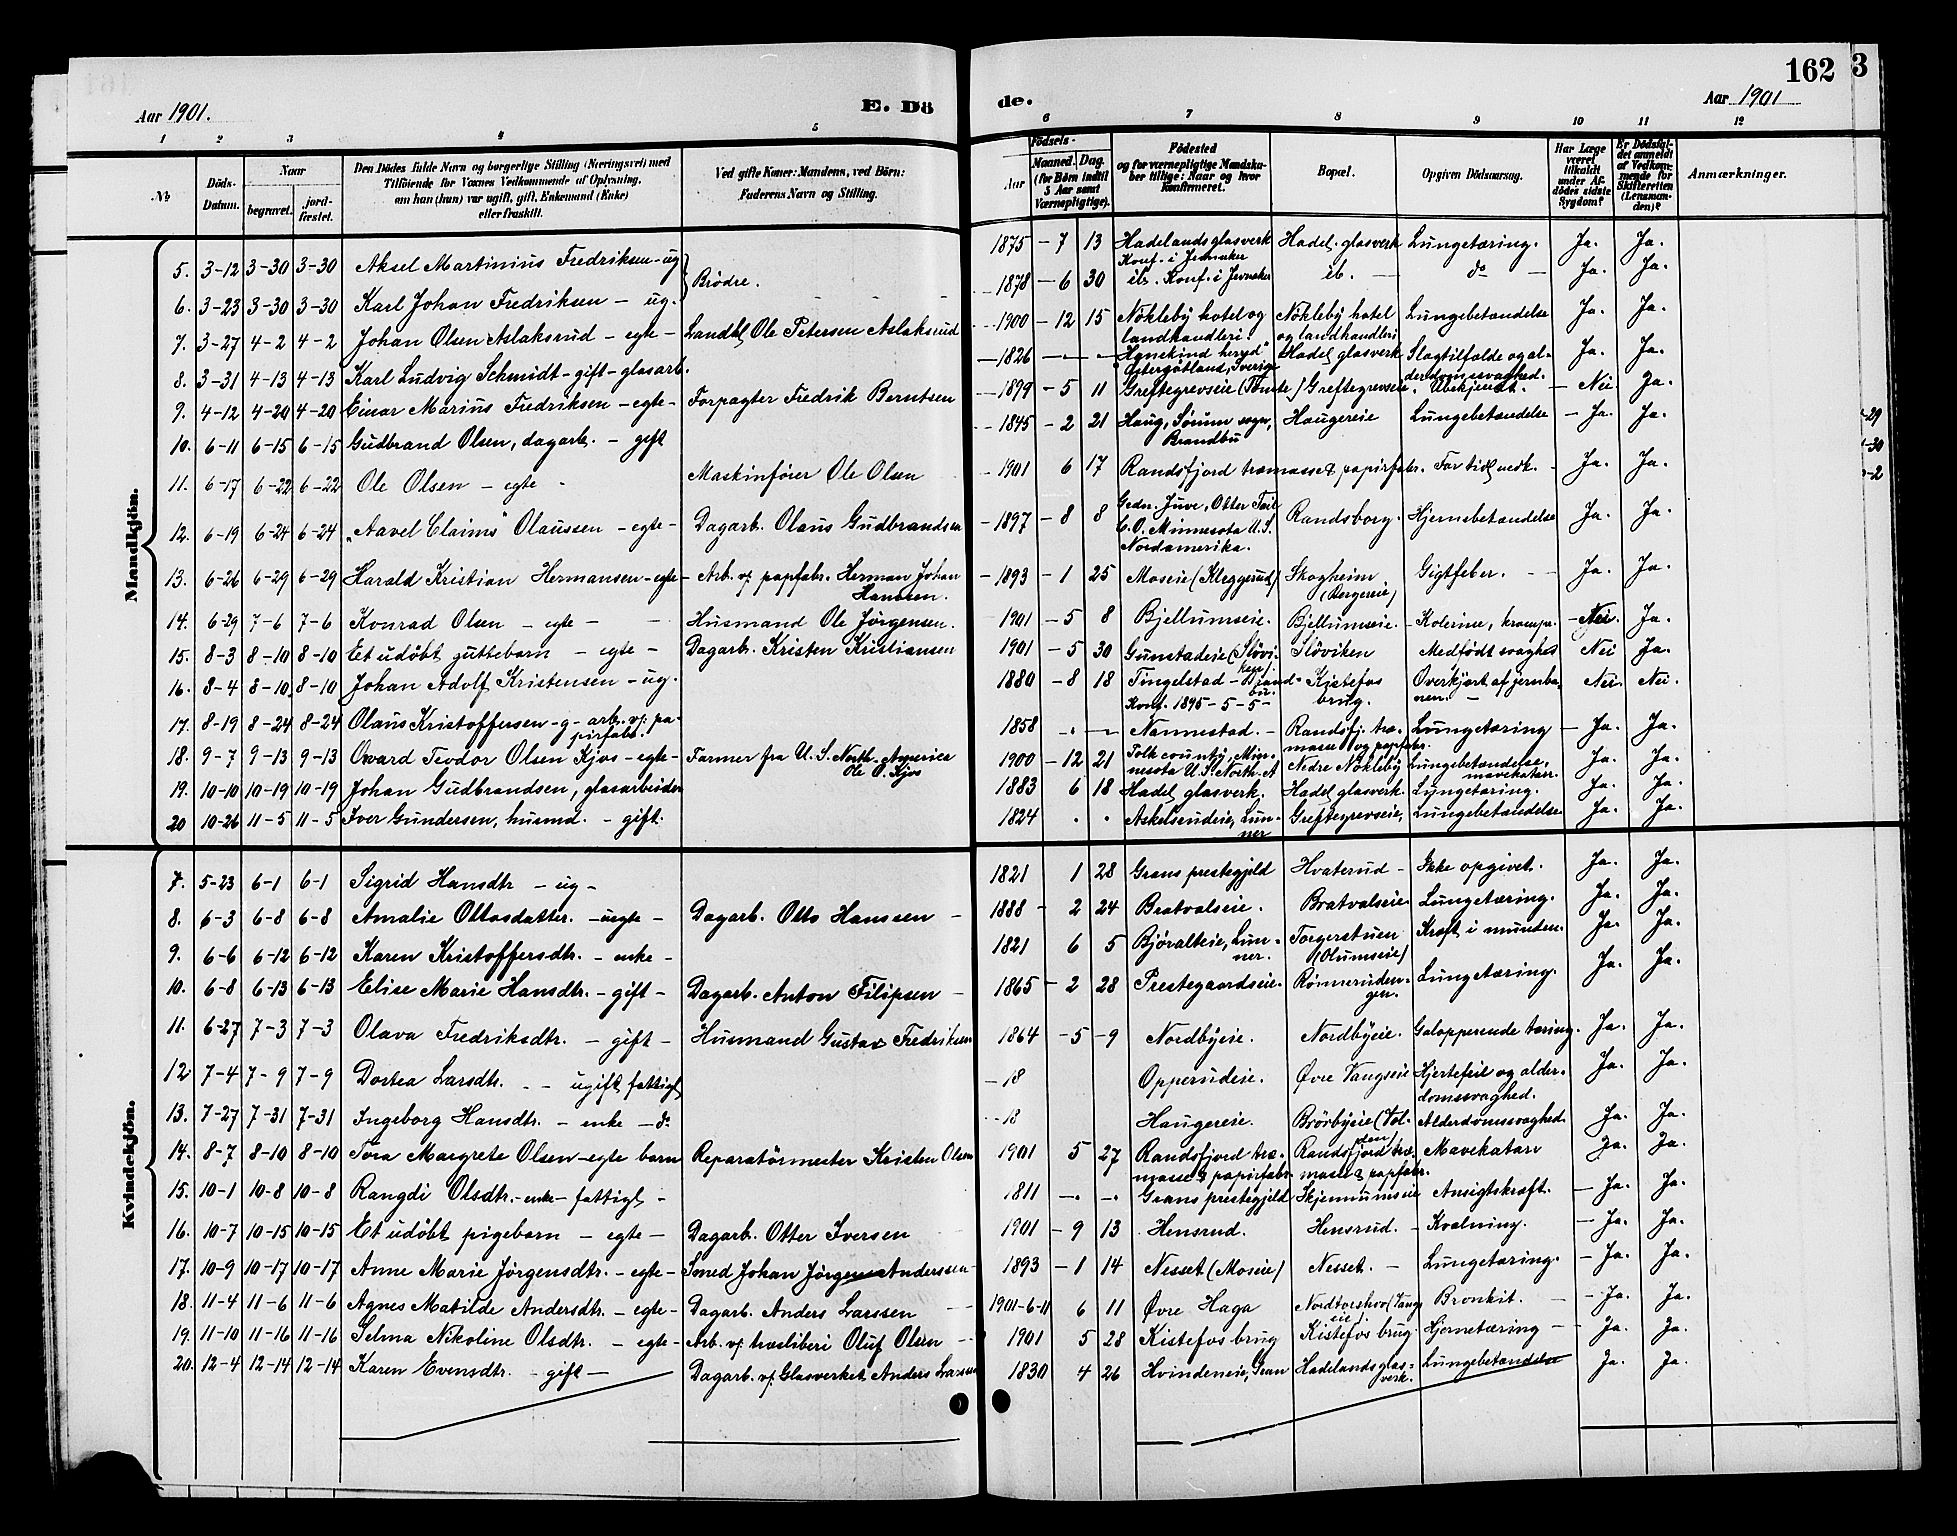 162
3
Aar 1901.
E. Dö
de.
Aar 1901
1 2 3 4 5 6 7 8 9 10 11 12
№
Döds-Datum.
Naar
begravet.
jord-fæstet.
Den Dödes fulde Navn og borgerlige Stilling (Næringsvei) med
Tilföiende for Voxnes Vedkommende af Oplysning,
om han (hun) var ugift, gift, Enkemand (Enke)
eller fraskilt.
Ved gifte Koner: Mandens, ved Börn:
Faderens Navn og Stilling.
Födsels-
Aar
Maaned. Dag.
(for Börn indtil
5 Aar samt
Værnepligtige).
Födested
og for værnepligtige Mandska-
ber tillige: Naar og hvor
konfirmeret.
Bopæl.
Opgiven Dödsaarsag.
Har Læge
været
tilkaldt
under Af-
dödes sidste
Sygdom?
Er Dödsfal-
det anmeldt
af Vedkom-
mende for
Skifteretten
(Lensman-
den)?
Anmærkninger.
Mandkjön.
5. 3-12 3-30 3-30 Aksel Martinius Fredriksen - ug 1875 - 7 13 Hadelands glasverk Hadel. glasverk Lungetæring. Ja. Ja.
Konf. i Jevnaker
Brødre.
6. 3-23 3-30 3-30 Karl Johan Fredriksen - ug. 1878 - 6 30 ib. Konf. i Jevnaker ib. - do - Ja. Ja.
7. 3-27 4-2 4-2 Johan Olsen Aslaksrud - egte - Landhl. Ole Petersen Aslaksrud 1900 - 12 15 Nökleby hotel og Nökleby hotel Lungebetændelse Ja. Ja.
landhandleri. og landhandleri
8. 3-31 4-13 4-13 Karl Ludvig Schmidt - gift - glasarb. 1826 - - - Hadel. glasverk Slagtilfælde og al- Ja. Ja.
Östergötland, Sverige derdomssvaghed.
9. 4-12 4-20 4-20 Einar Marius Fredriksen - egte - Forpagter Fredrik Berntsen 1899 - 5 11 Greftegrevseie (Tomte) Greftegrevseie Ubekjendt. - Nei Ja.
10. 6-11 6-15 6-15 Gudbrand Olsen, dagarb. - gift 1845 - 2 21 Haug, Sörum sogn, Haugereie Lungebetændelse - Ja. Ja.
Brandbu
11. 6-17 6-22 6-22 Ole Olsen - egte - Maskinförer Ole Olsen 1901 6 17 Randsfjord træmasse & papirfabr. For tidl. nedk. - Ja. Ja.
12. 6-19 6-24 6-24 "Aavel Claims" Olaussen - egte - Dagarb. Olaus Gudbrandsen 1897 - 8 8 Juve, Otter Tail Randsborg. Hjernebetændelse Ja. Ja.
C.O. Minnesota U.S.
Nordamerika.
13. 6-26 6-29 6-29 Harald Kristian Hermansen - egte - Arb. v. papfabr. Herman Johan 1893 - 1 25 Moseie (Kleggerud) Skogheim Gigtfeber. - Ja. Ja.
Hansen. (Bergereie)
14. 6-29 7-6 7-6 Konrad Olsen - egte - Husmand Ole Jørgensen. 1901 - 5 8 Bjellumseie. Bjellumseie. - Kolerine, krampe. - Nei. Ja.
15. 8-3 8-10 8-10 Et udöbt guttebarn - egte - Dagarb. Kristen Kristiansen 1901 - 5 30 Gunstadeie (Slövi- Slöviken Medfödt svaghed Nei Ja.
ken).
16. 8-4 8-10 8-10 Johan Adolf Kristensen - ug. 1880 - 8 18 Tingelstad - Brand- Kistefos Overkjört af jernba- Nei. Nei.
bu. Konf. 1895-5-5- brug. nen. -
17. 8-19 8-24 8-24 Olaus Kristoffersen - g - arb. v. pa- 1858 - - Nannestad. - Randsfj. træ- Lungetæring - Ja. Ja.
pirfabr. masse og papfabr.
18. 9-7 9-13 9-13 Ovard Teodor Olsen Kjos - egte - Farmer fra U.S. North-America 1900 - 12 21 Polk county, Min- Nedre Nökleby Lungebetændelse, Ja. Ja.
Ole O. Kjos nesota U.S. North. A mavekatarr.
19. 10-10 10-19 10-19 Johan Gudbrandsen, glasarbeider 1883 6 18 Hadel. glasverk. Hadel. glasverk. Lungetæring. Ja. Ja.
20 10-26 11-5 11-5 Iver Gundersen, husmd. - gift. 1824 Askelsrudeie, Lun- Greftegrevseie, Lungebetændelse Ja. Ja.
ner
Kvindekjön.
7. 5-23 6-1 6-1 Sigrid Hansdtr - ug - 1821 1 28 Grans prestegjeld Hvaterud - Ikke opgivet. Ja. Ja.
8. 6-3 6-8 6-8 Amalie Ottosdatter. - uegte - Dagarb. Otto Hanssen - 1888 - 2 24 Bratvalseie. Bratvalseie. Lungetæring. Ja. Ja.
9. 6-6 6-12 6-12 Karen Kristoffersdtr. - enke - 1821 6 5 Björalteie, Lun- Torgerstuen Kræft i munden. Ja. Ja.
ner. (Olumseie)
10. 6-8 6-13 6-13 Elise Marie Hansdtr. - gift - Dagarb. Anton Filipsen - 1865 - 2 28 Prestegaardseie. Rönneruden- Lungetæring. Ja. Ja.
gen.
11. 6-27 7-3 7-3 Olava Fredriksdtr. - gift - Husmand Gustav Fredriksen 1864 - 5 - 9 Nordbyeie. Nordbyeie. Galopperende tæring. Ja. Ja.
12 7-4 7-9 7-9 Dortea Larsdtr. - - ugift, fattigl. - 18 Opperudeie. Øvre Vangseie Hjertefeil og alder- Ja. Ja.
domssvaghed.
13. 7-27 7-31 7-31 Ingeborg Hansdtr. - enke - do 18 Haugereie. Brörbyeie Alderdomssvaghed. Ja. Ja.
14. 8-7 8-10 8-10 Tora Margrete Olsen - egte barn Reparatörmester Kristen Olsen 1901 5 27 Randsfjord træ- Randsfjord træ- Mavekatarr Ja. Ja.
masse & papirfabr. masse & papfabr.
15. 10-1 10-8 10-8 Rangdi Olsdtr. - enke - fattigl - 1811 - - Grans prestegjeld Skjennumseie Ansigtskræft. - Ja. Ja.
16. 10-7 10-15 10-15 Et udöbt pigebarn - egte - Dagarb. Otter Iversen 1901 - 9 13 Hensrud. Hensrud. - Kvælning. - Ja. Ja.
17. 10-9 10-17 10-17 Anne Marie Jørgensdtr. - egte - Smed Johan Jørgen Anderssen - 1893 - 1 14 Nesset (Moseie) Nesset. - Lungetæring. - Ja. Ja.
18. 11-4 11-6 11-6 Agnes Matilde Andersdtr. - egte - Dagarb. Anders Larssen - 1901-6-11 6 11 Øvre Haga Nordtorshov (Vang- Bronkit. - Ja. Ja.
eie).
19. 11-10 11-16 11-16 Selma Nikoline Olsdtr. - egte - Arb. v. træsliberi Oluf Olsen - 1901 5 28 Kistefos brug Kistefos brug. Hjernetæring - Ja. Ja.
20. 12-4 12-14 12-14 Karen Evensdtr. - gift - Dagarb. v. Glasverket Anders Larssen 1830 4 26 Hvindeneie, Gran Hadelandsglas- Lungebetændelse Ja. Ja.
verk.